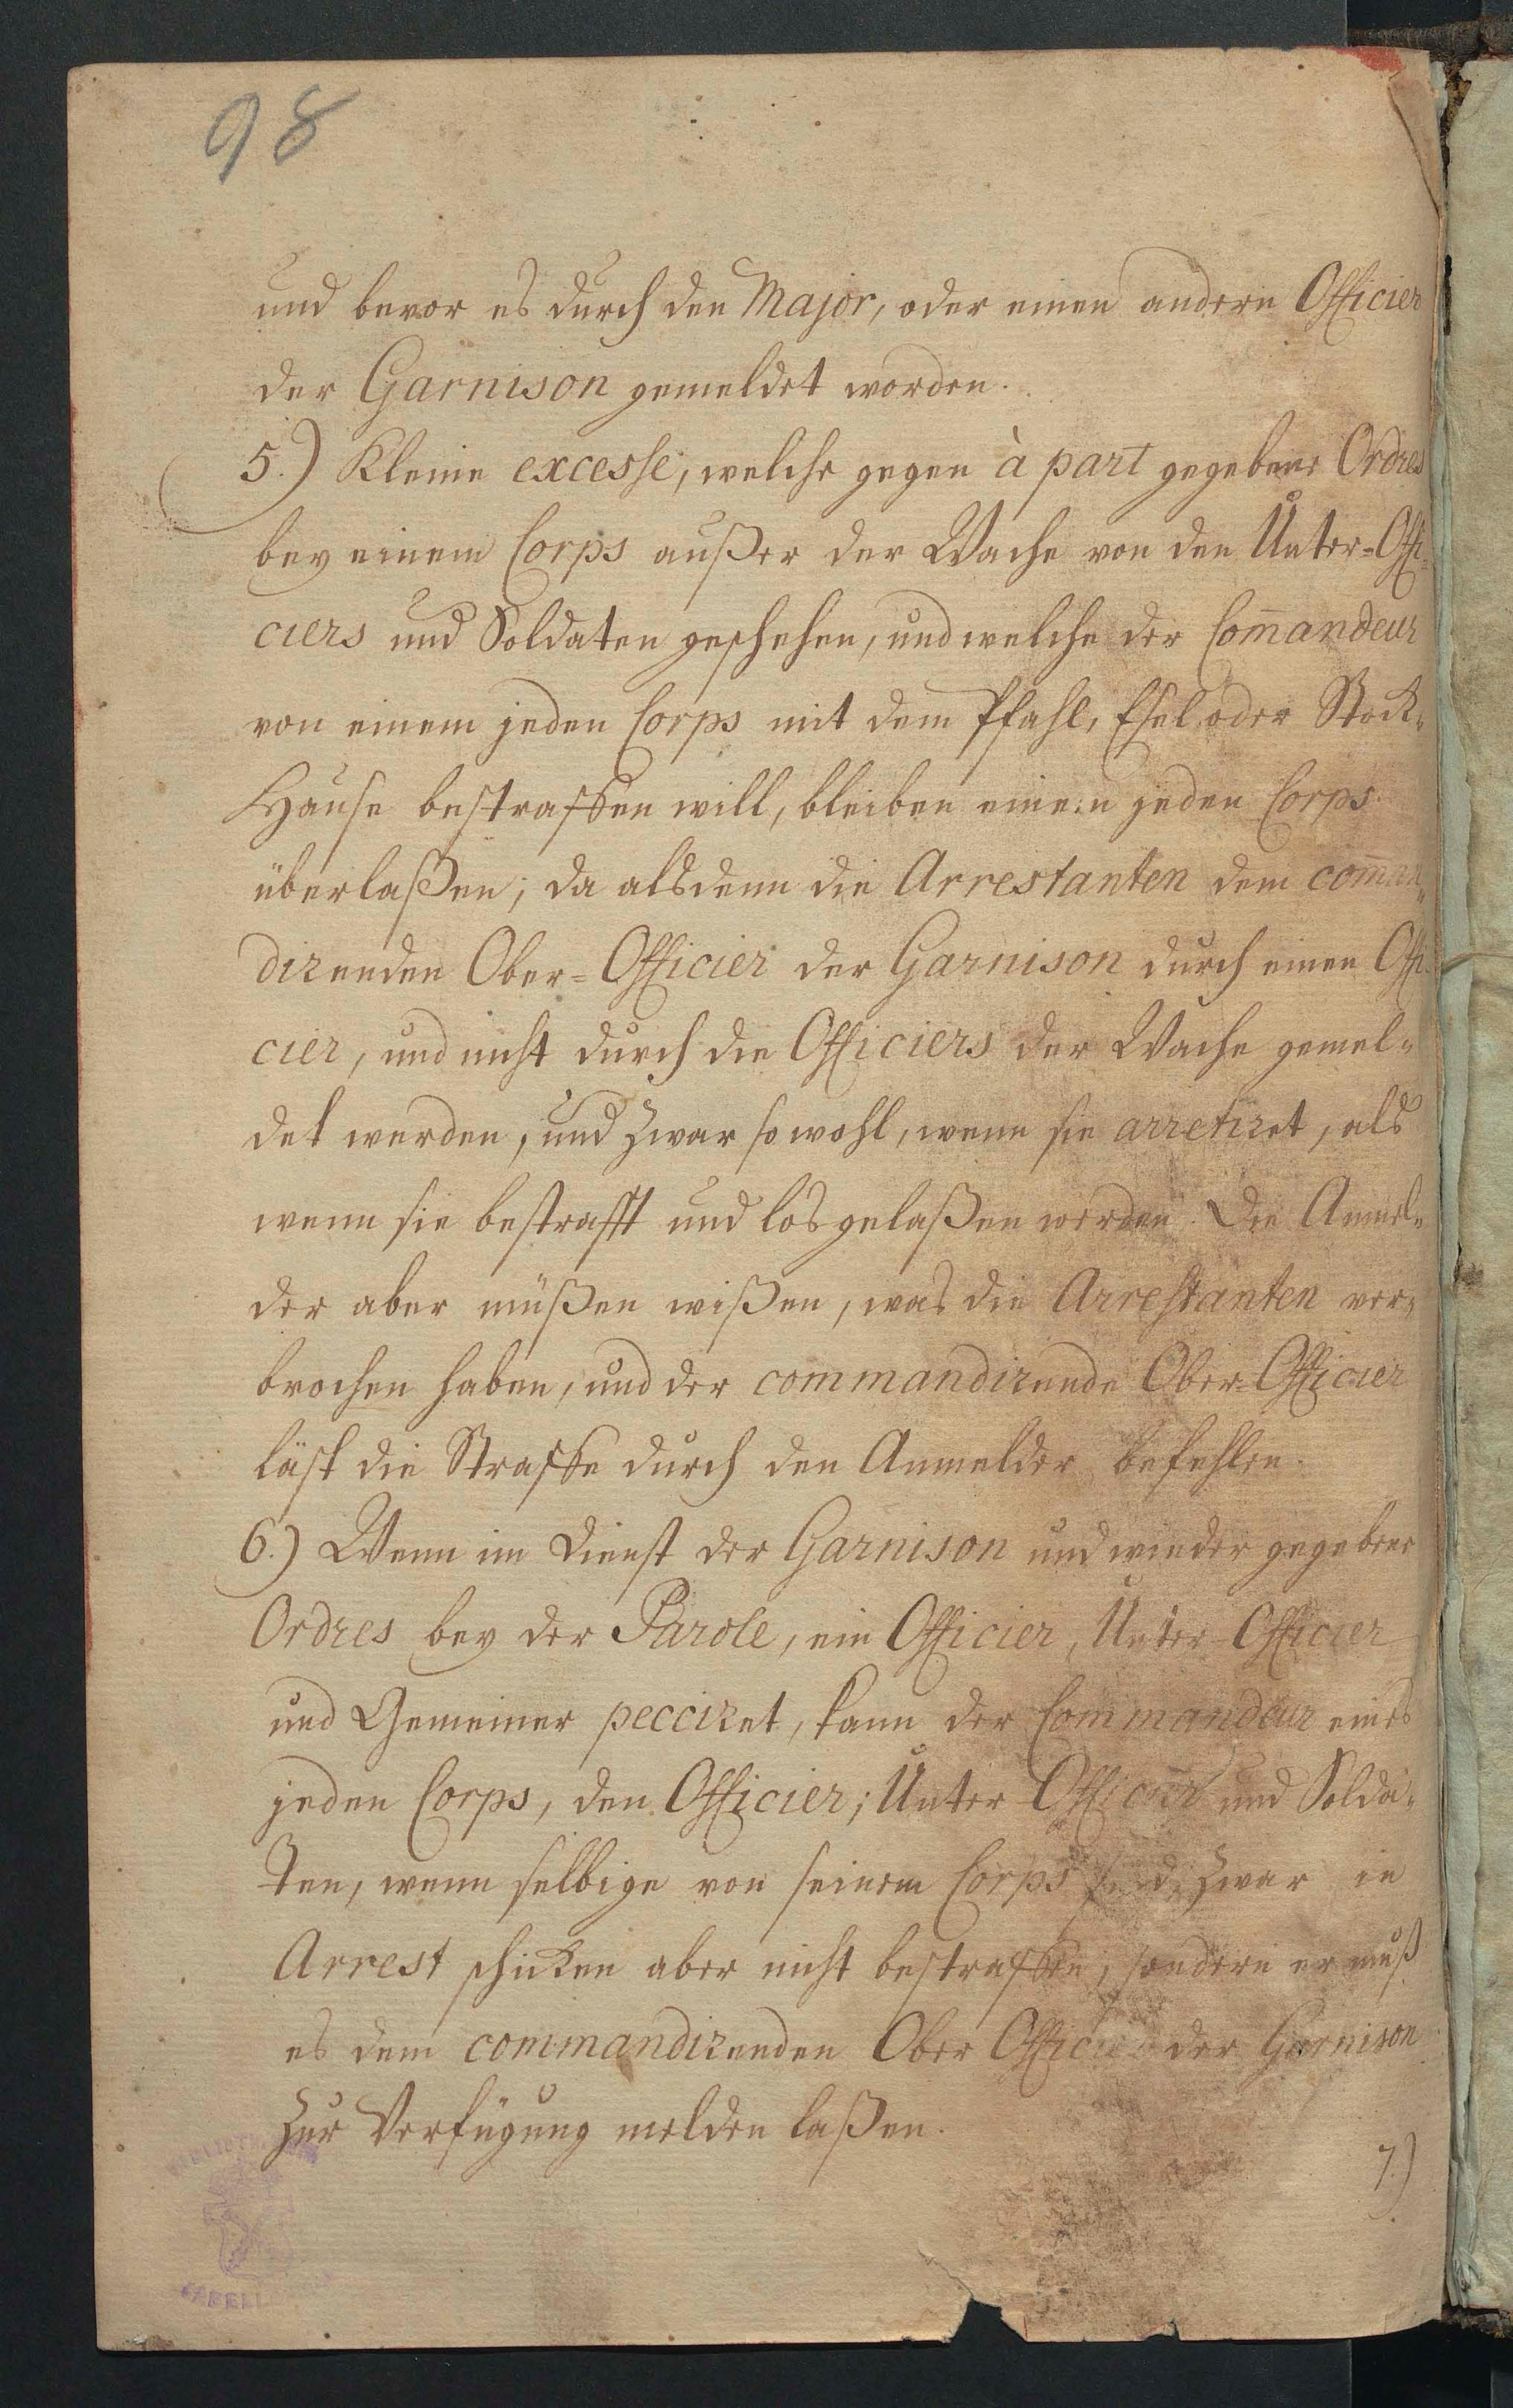 98
und bevor es durch den Major, oder einen andern Officier
der Garnison gemeldet worden.
5.) Kleine excesse, welche gegen à part gegebene Ordres
bey einem Corps außer der Wache von den Unter-Offi-
ciers und Soldaten geschehen, und welche der Com̄andeur
von einem jeden Corps mit dem Pfahl, Esel oder Stock-
Hause bestraffen will, bleiben einem jeden Corps
überlaßen; da alsdenn die Arrestanten dem com̄an-
direnden Ober-Officier der Garnison durch einen Offi-
cier, und nicht durch die Officiers der Wache gemel-
det werden, und zwar so wohl, wenn sie arretiret, als
wenn sie bestrafft und los gelaßen werden. Die Anmel-
der aber müßen wißen, was die Arrestanten ver-
brochen haben, und der commandirende Ober-Officier
läst die Straffe durch den Anmelder befehlen.
6.) Wenn im Dienst der Garnison und wieder gegebene
Ordres bey der Parole, ein Officier, Unter-Officier
und Gemeiner pecciret, kann der Commandeur eines
jeden Corps, den Officier, Unter Officier und Solda-
ten, wenn selbige von seinem Corps sind, zwar in
Arrest schicken aber nicht bestraffen, sondern er muß
es dem commandirenden Ober Officier der Garnison
zur Verfügung melden laßen.
7.)